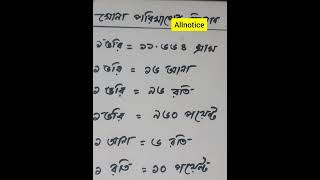 সোনা পরিমাপের
Allnotice
১ ভরি = ১১.৬৬৪ গ্রাম
১ ভরি = ১৬ আনা
১ ভরি = ৯৬ রতি
১ ভরি = ৯৬০ পয়েন্ট
১ আনা = ৬ রতি
১ রতি = ১০ পয়েন্ট